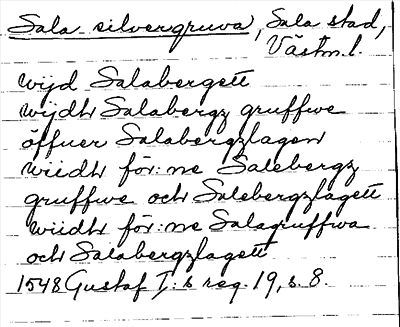 Sala silvergruva, Sala stad,
Västm.l.
wijd Salabergett
wijdh Salabergz gruffwe
öffuer Salabergzlagen
wiidh för:ne Salebergz
gruffwe och Salebergzlagett
wiidh för:ne Salagruffwa
och Salabergzlagett
1548 Gustaf I:s reg. 19, s. 8.